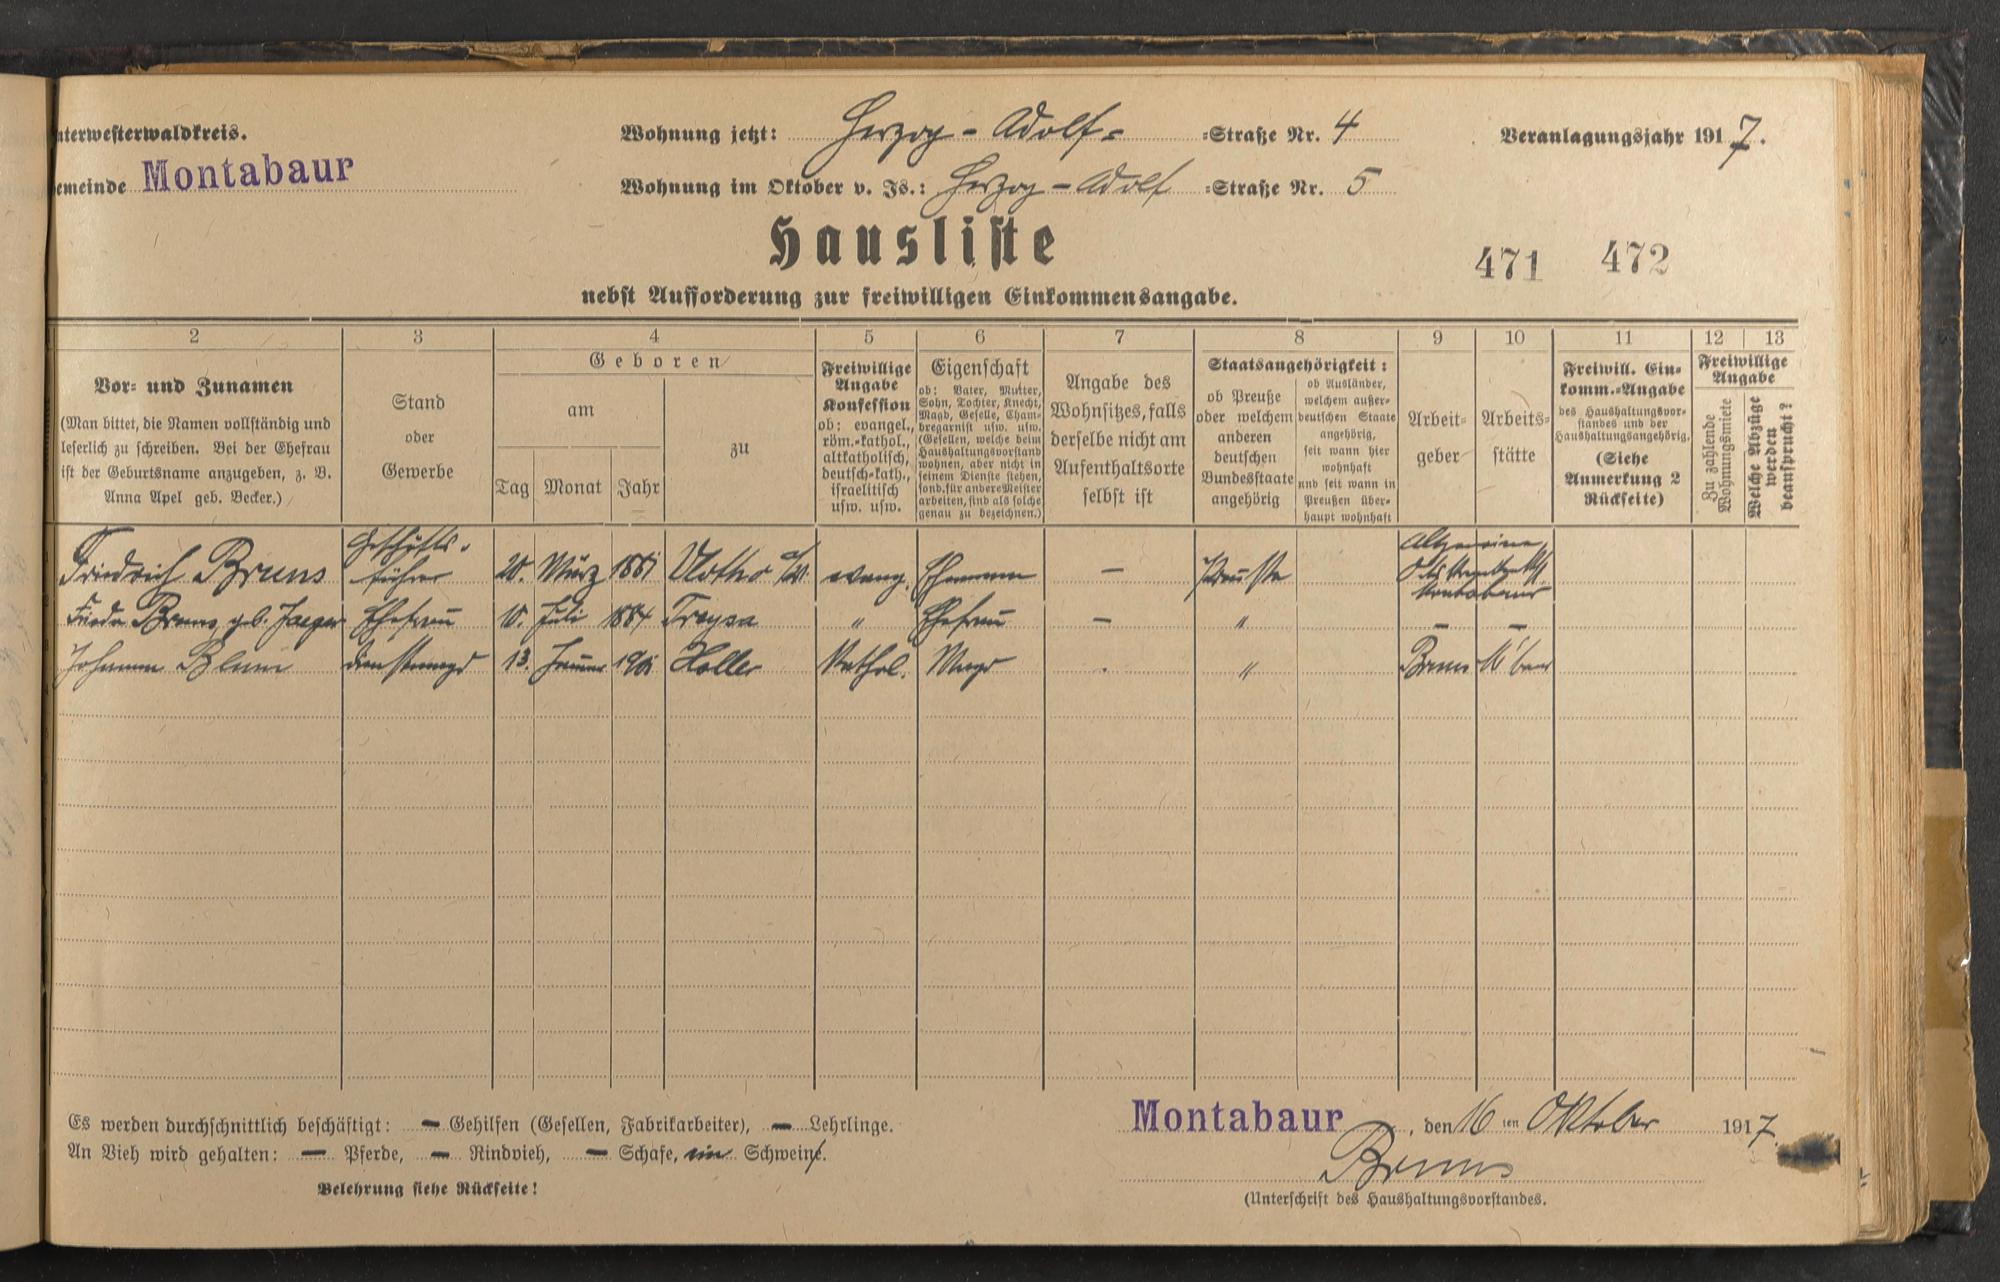 nterwesterwaldkreis.
Wohnung jetzt: Herzog-Adolf- -Straße Nr. 4
Veranlagungsjahr 1917.
emeinde Montabaur
Wohnung im Oktober v. Js.: Herzog-Adolf -Straße Nr. 5
Hausliste
471 472
nebst Aufforderung zur freiwilligen Einkommensangabe.
2 3 4 5 6 7 8 9 10 11 12 13
Vor- und Zunamen
(Man bittet, die Namen vollständig und
leserlich zu schreiben. Bei der Ehefrau
ist der Geburtsname anzugeben, z. B.
Anna Apel geb. Becker.)
Stand
oder
Gewerbe
Geboren
am
Tag Monat Jahr
zu
Freiwillige
Angabe
Konfession
ob: evangel.,
röm.-kathol.,
altkatholisch,
deutsch-kath.,
israelitisch
usw. usw.
Eigenschaft
ob: Vater, Mutter,
Sohn, Tochter, Knecht,
Magd, Geselle, Cham-
bregarnist usw. usw.
(Gesellen, welche beim
Haushaltungsvorstand
wohnen, aber nicht in
seinem Dienste stehen,
sond. für andere Meister
arbeiten, sind als solche
genau zu bezeichnen.)
Angabe des
Wohnsitzes, falls
derselbe nicht am
Aufenthaltsorte
selbst ist
Staatsangehörigkeit:
ob Preuße
oder welchem
anderen
deutschen
Bundesstaate
angehörig
ob Ausländer,
welchem außer-
deutschen Staate
angehörig,
seit wann hier
wohnhaft
und seit wann in
Preußen über-
haupt wohnhaft
Arbeit-
geber
Arbeits-
stätte
Freiwill. Ein-
komm.-Angabe
des Haushaltungsvor-
standes und der
Haushaltungsangehörig.
(Siehe
Anmerkung 2
Rückseite)
Freiwillige
Angabe
Zu zahlende
Wohnungsmiete
Welche Abzüge
werden
beansprucht?
Friedrich Bruns Geschäfts-
führer 20. März 1881 Vlotho a/W. evang. Ehemann — Preuße Allgemeine
Ortskrankenk.
Montabaur
Frieda Bruns geb. Jaeger Ehefrau 10. Juli 1884 Treysa " Ehefrau — " — —
Johanna Blum Dienstmagd 13. Holler Kathol. Magd " Bruns M'baur
Es werden durchschnittlich beschäftigt: — Gehilfen (Gesellen, Fabrikarbeiter), — Lehrlinge.
An Vieh wird gehalten: — Pferde, — Rindvieh, — Schafe, ein Schweine.
Belehrung siehe Rückseite!
Montabaur, den 16 ten Oktober 1917
Bruns
(Unterschrift des Haushaltungsvorstandes.